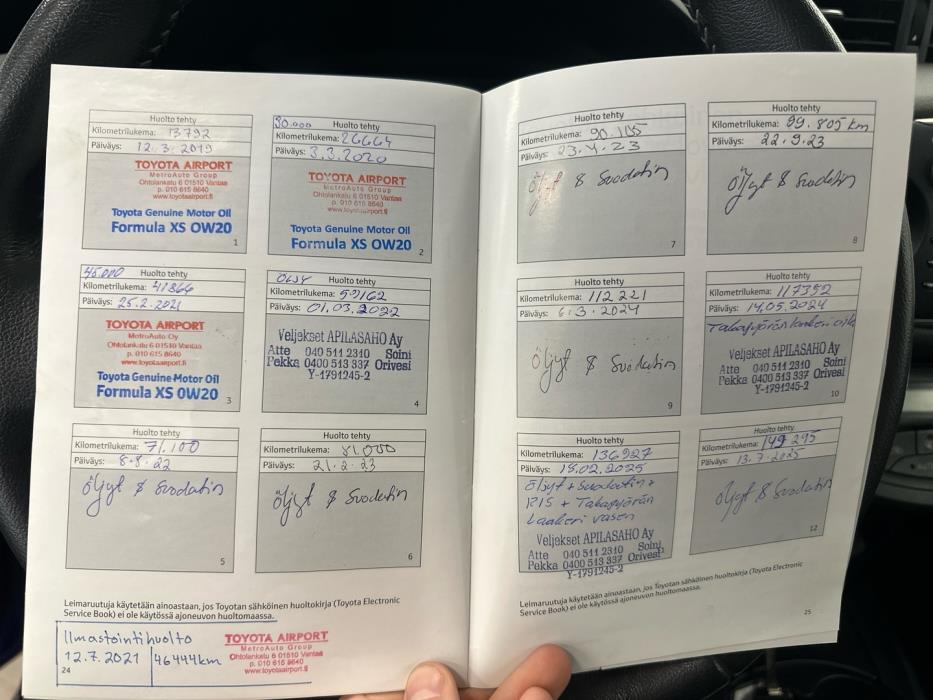 Huolto tehty
Kilometrilukema: 13792
Päiväys: 12.3.2019
TOYOTA AIRPORT
MetroAuto Group
Ohtolankatu 6 01510 Vantaa
p. 010 615 8640
www.toyotaairport.fi
Toyota Genuine Motor Oil
Formula XS OW20
1
30.000 Huolto tehty
Kilometrilukema: 26664
Päiväys: 3.3.2020
TOYOTA AIRPORT
MetroAuto Group
Ohtolankatu 6 01510 Vantaa
p. 010 615 8640
www.toyotaairport.fi
Toyota Genuine Motor Oil
Formula XS OW20
2
45.000 Huolto tehty
Kilometrilukema: 41866
Päiväys: 25.2.2021
TOYOTA AIRPORT
MetroAuto Oy
Ohtolankatu 6 01510 Vantaa
p. 010 615 8640
www.toyotaairport.fi
Toyota Genuine Motor Oil
Formula XS 0W20
3
Huolto tehty
Kilometrilukema: 59162
Päiväys: 01.03.2022
Veljekset APILASAHO Ay
Atte 040 511 2310 Soini
Pekka 0400 513 337 Orivesi
Y-1791245-2
4
Huolto tehty
Kilometrilukema: 71.100
Päiväys: 8.8.22
Öljyt & Suodatin
5
Huolto tehty
Kilometrilukema: 81.000
Päiväys: 21.2.23
Öljyt & Suodatin
6
Leimaruutuja käytetään ainoastaan, jos Toyotan sähköinen huoltokirja (Toyota Electronic
Service Book) ei ole käytössä ajoneuvon huoltomaassa.
Ilmastointihuolto
12.7.2021 46444km
TOYOTA AIRPORT
MetroAuto Group
Ohtolankatu 6 01510 Vantaa
p. 010 615 8640
www.toyotaairport.fi
24
Huolto tehty
Kilometrilukema: 90.185
Päiväys: 23.4.23
Öljyt & Suodatin
7
Huolto tehty
Kilometrilukema: 99.805 km
Päiväys: 22.9.23
Öljyt & Suodatin
8
Huolto tehty
Kilometrilukema: 112 221
Päiväys: 6.3.2024
Öljyt & Suodatin
9
Huolto tehty
Kilometrilukema: 117352
Päiväys: 14.05.2024
Takapyörän laakeri
Veljekset APILASAHO Ay
Atte 040 511 2310 Soini
Pekka 0400 513 337 Orivesi
Y-1791245-2
10
Huolto tehty
Kilometrilukema: 136927
Päiväys: 15.02.2025
Öljyt + Suodatin +
RIS + Takapyörän
Laakeri vasen
Veljekset APILASAHO Ay
Atte 040 511 2310 Soini
Pekka 0400 513 337 Orivesi
Y-1791245-2
Huolto tehty
Kilometrilukema: 149 295
Päiväys: 13.7.2025
Öljyt & Suodatin
12
Leimaruutuja käytetään ainoastaan, jos Toyotan sähköinen huoltokirja (Toyota Electronic
Service Book) ei ole käytössä ajoneuvon huoltomaassa.
25